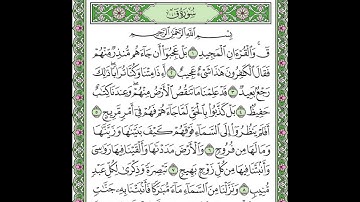 سورة ق
بسم الله الرحمن الرحيم
ق ۚ وَٱلْقُرْءَانِ ٱلْمَجِيدِ ١ بَلْ عَجِبُوٓا۟ أَن جَآءَهُم مُّنذِرٌ مِّنْهُمْ
فَقَالَ ٱلْكَٰفِرُونَ هَٰذَا شَىْءٌ عَجِيبٌ ٢ أَءِذَا مِتْنَا وَكُنَّا تُرَابًا ۖ ذَٰلِكَ
رَجْعٌۢ بَعِيدٌ ٣ قَدْ عَلِمْنَا مَا تَنقُصُ ٱلْأَرْضُ مِنْهُمْ ۖ وَعِندَنَا كِتَٰبٌ
حَفِيظٌۢ ٤ بَلْ كَذَّبُوا۟ بِٱلْحَقِّ لَمَّا جَآءَهُمْ فَهُمْ فِىٓ أَمْرٍ مَّرِيجٍ ٥
أَفَلَمْ يَنظُرُوٓا۟ إِلَى ٱلسَّمَآءِ فَوْقَهُمْ كَيْفَ بَنَيْنَٰهَا وَزَيَّنَّٰهَا
وَمَا لَهَا مِن فُرُوجٍ ٦ وَٱلْأَرْضَ مَدَدْنَٰهَا وَأَلْقَيْنَا فِيهَا رَوَٰسِىَ
وَأَنۢبَتْنَا فِيهَا مِن كُلِّ زَوْجٍۭ بَهِيجٍ ٧ تَبْصِرَةً وَذِكْرَىٰ لِكُلِّ عَبْدٍ
مُّنِيبٍ ٨ وَنَزَّلْنَا مِنَ ٱلسَّمَآءِ مَآءً مُّبَٰرَكًا فَأَنۢبَتْنَا بِهِۦ جَنَّٰتٍ